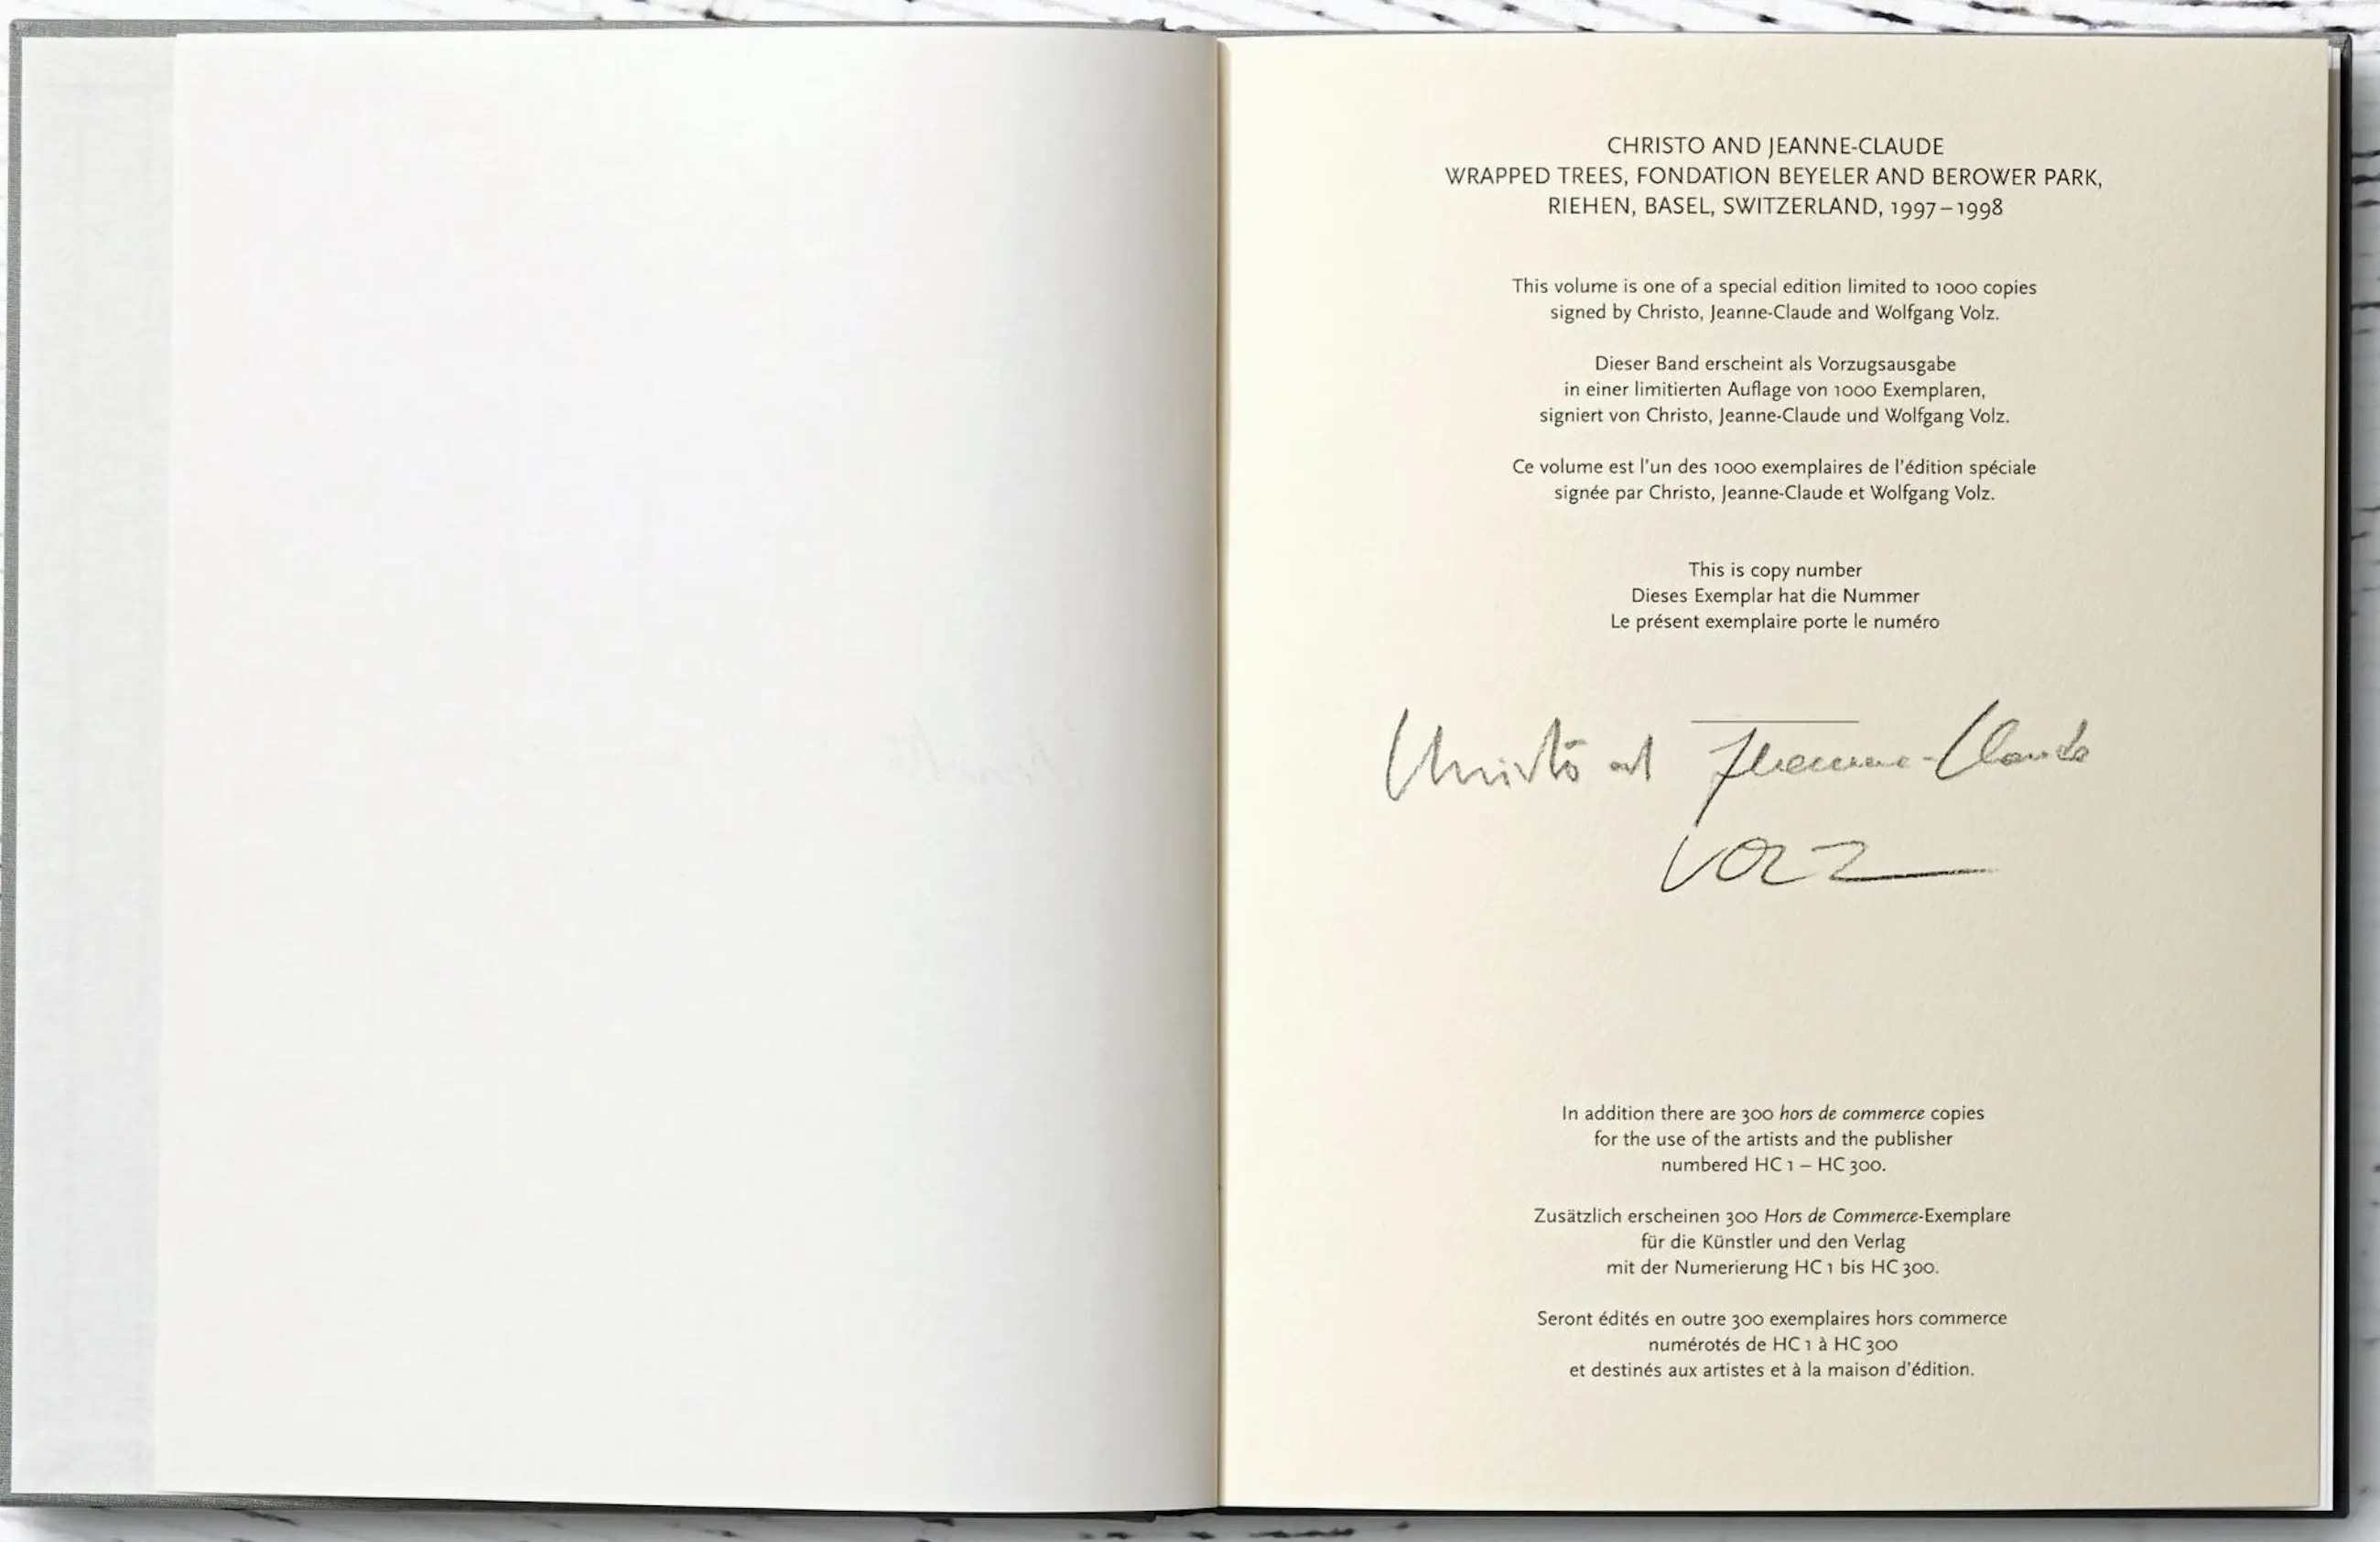 CHRISTO AND JEANNE-CLAUDE
WRAPPED TREES, FONDATION BEYELER AND BEROWER PARK,
RIEHEN, BASEL, SWITZERLAND, 1997–1998
This volume is one of a special edition limited to 1000 copies
signed by Christo, Jeanne-Claude and Wolfgang Volz.
Dieser Band erscheint als Vorzugsausgabe
in einer limitierten Auflage von 1000 Exemplaren,
signiert von Christo, Jeanne-Claude und Wolfgang Volz.
Ce volume est l'un des 1000 exemplaires de l'édition spéciale
signée par Christo, Jeanne-Claude et Wolfgang Volz.
This is copy number
Dieses Exemplar hat die Nummer
Le présent exemplaire porte le numéro
Christo and Jeanne-Claude
VOLZ
In addition there are 300 hors de commerce copies
for the use of the artists and the publisher
numbered HC 1 – HC 300.
Zusätzlich erscheinen 300 Hors de Commerce-Exemplare
für die Künstler und den Verlag
mit der Numerierung HC 1 bis HC 300.
Seront édités en outre 300 exemplaires hors commerce
numérotés de HC 1 à HC 300
et destinés aux artistes et à la maison d'édition.